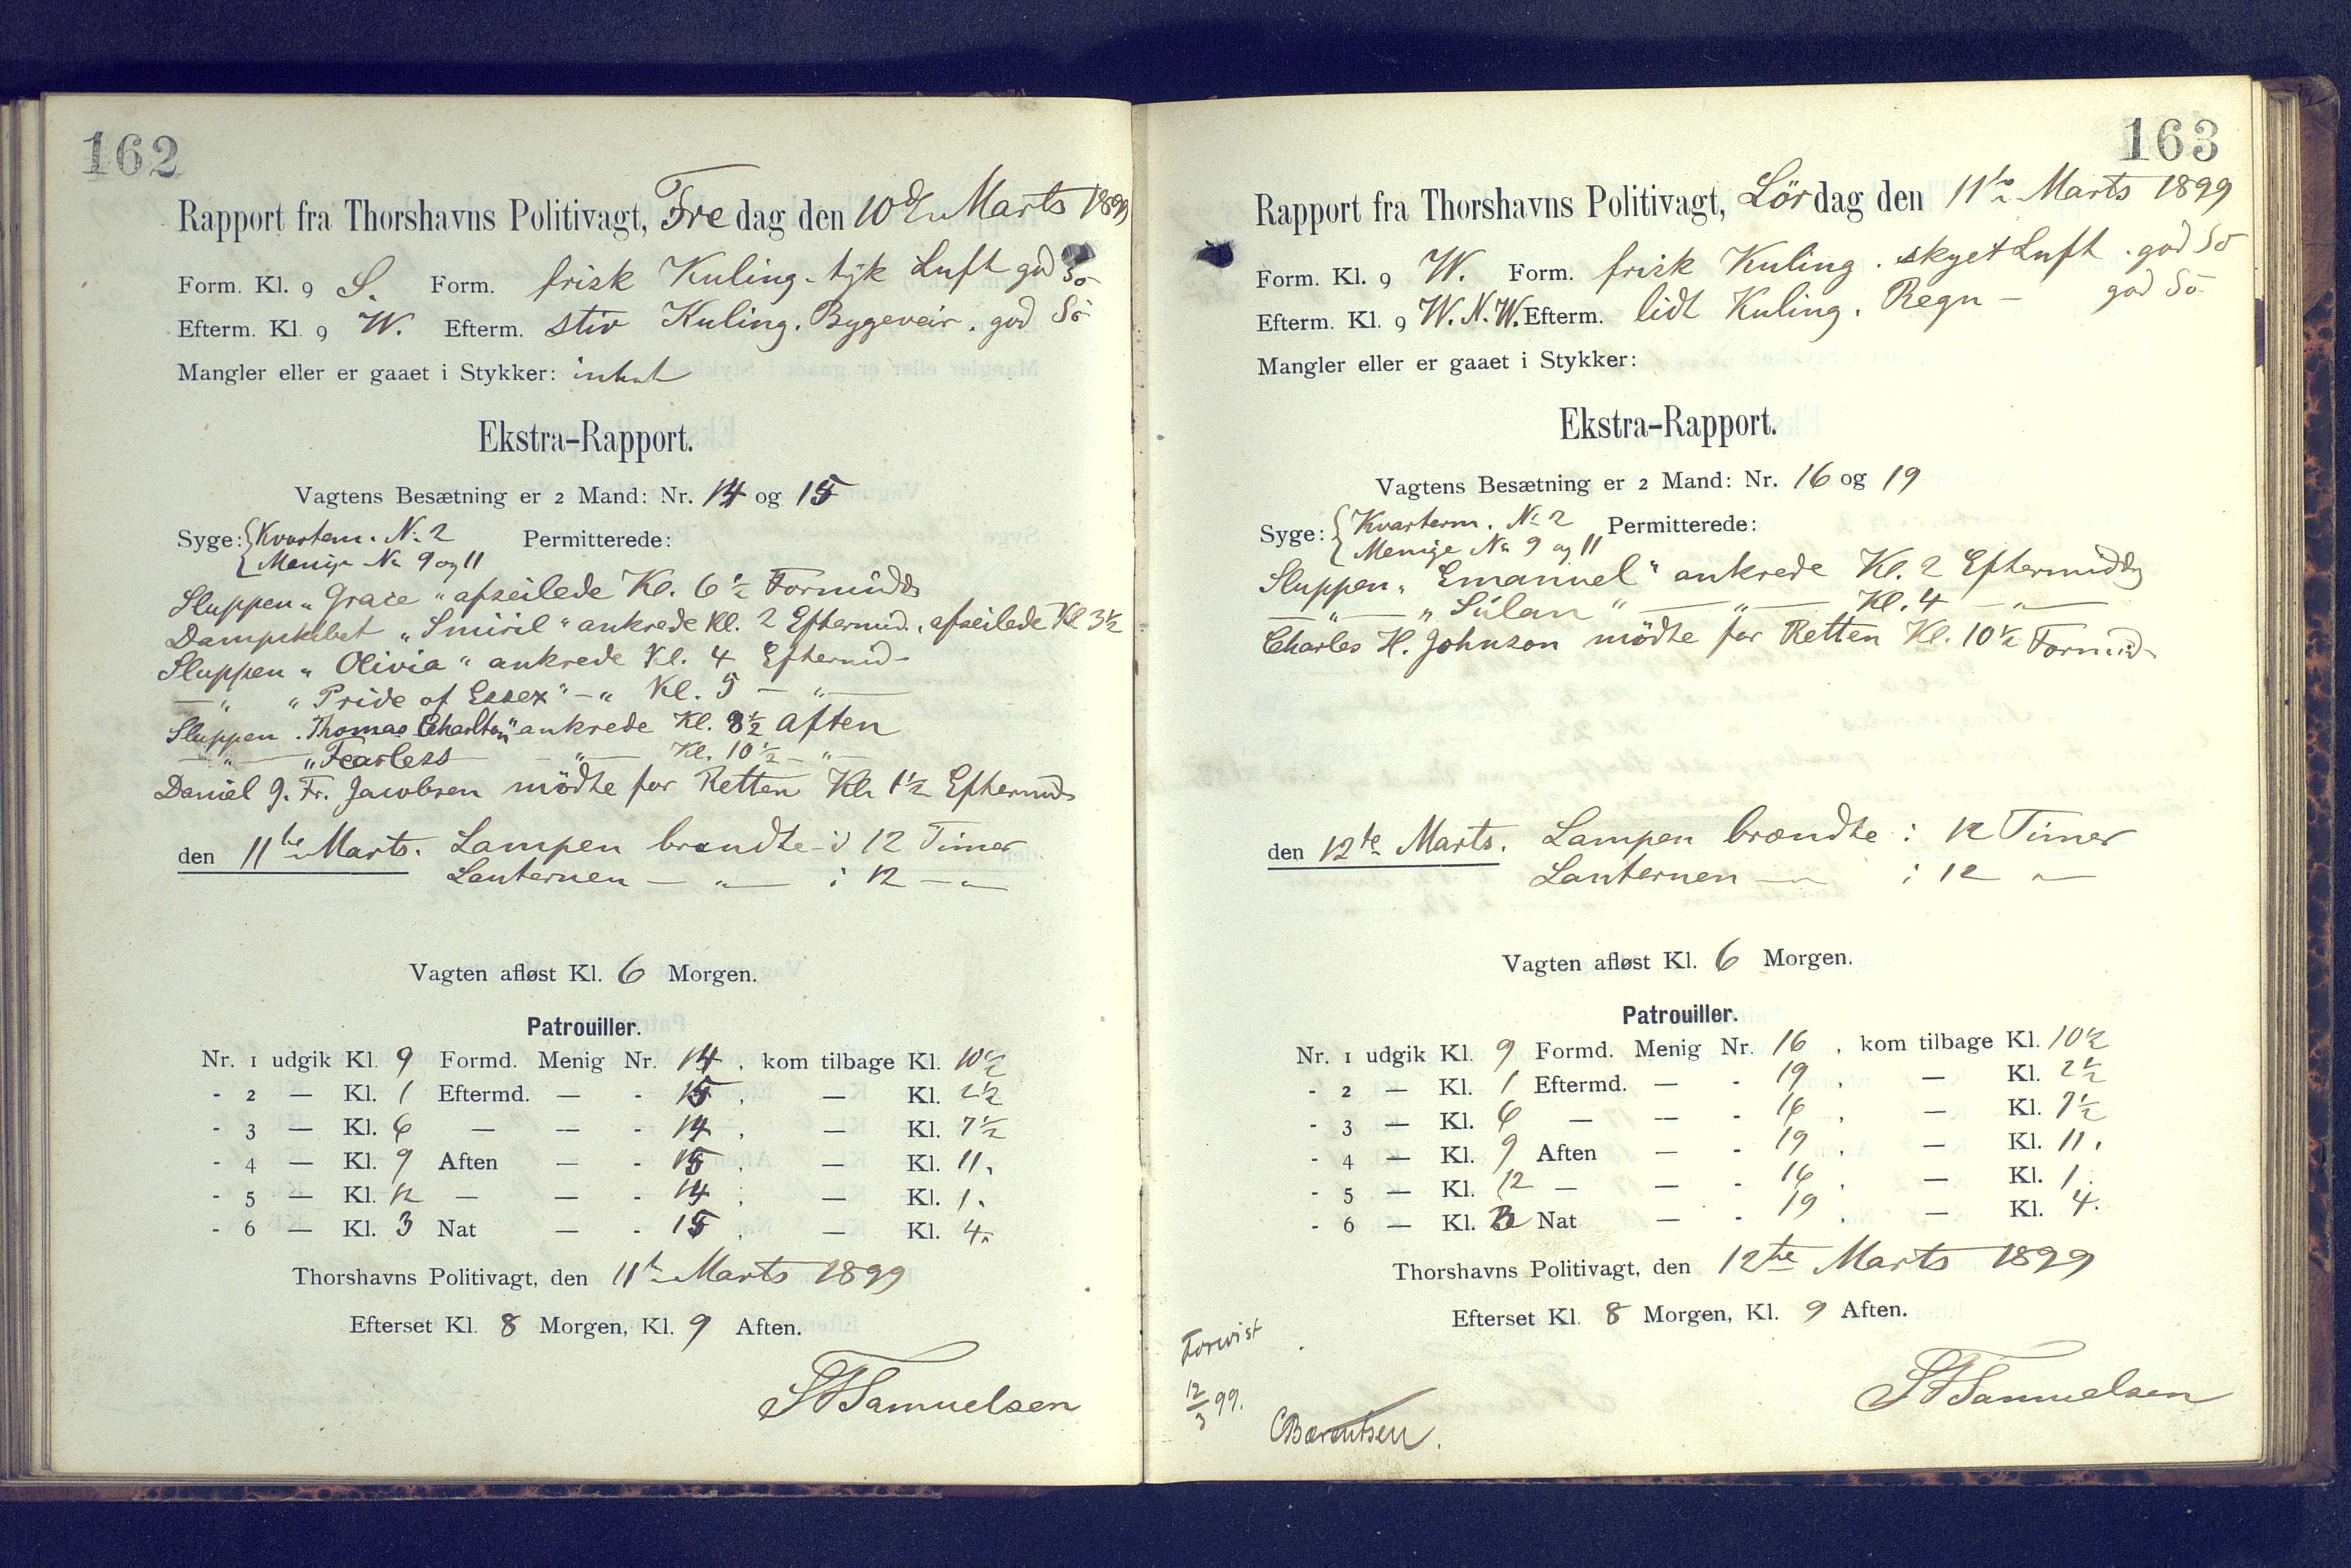 162
Rapport fra Thorshavns Politivagt, Fredag den 10de Marts 1899
Form. Kl. 9 S. Form. frisk Kuling. tyk Luft god Sö
Efterm. Kl. 9 W. Efterm. stiv Kuling. Bygeveir. god Sö
Mangler eller er gaaet i Stykker: intet
Ekstra-Rapport.
Vagtens Besætning er 2 Mand: Nr. 14 og 15
Syge: { Kvarterm. No 2 Permitterede:
Menige No 9 og 11
Sluppen „Grace“ afseilede Kl. 6½ Formidd
Dampskibet „Smiril“ ankrede Kl. 2 Eftermid., afseilede Kl 3½
Sluppen „Olivia“ ankrede Kl. 4 Eftermid
— „ „Pride of Essex“ — „ Kl. 5 — „ —
Sluppen „Thomas Charlton“ ankrede Kl. 8½ Aften
— „ — „Fearless — „ — Kl. 10½ — „ —
Daniel J. Fr. Jacobsen mödte for Retten Kl. 1½ Eftermid
den 11te Marts. Lampen brændte i 12 Timer
Lanternen — „ — i 12 — „ —
Vagten afløst Kl. 6 Morgen.
Patrouiller.
Nr. 1 udgik Kl. 9 Formd. Menig Nr. 14, kom tilbage Kl. 10½
- 2 — Kl. 1 Eftermd. — - 15, — Kl. 2½
- 3 — Kl. 6 — — - 14, — Kl. 7½
- 4 — Kl. 9 Aften — - 15, — Kl. 11.
- 5 — Kl. 12 — — - 14, — Kl. 1.
- 6 — Kl. 3 Nat — - 15, — Kl. 4.
Thorshavns Politivagt, den 11te Marts 1899
Efterset Kl. 8 Morgen, Kl. 9 Aften.
Samuelsen
163
Rapport fra Thorshavns Politivagt, Lördag den 11te Marts 1899
Form. Kl. 9 W. Form. frisk Kuling. skyet Luft. god Sö
Efterm. Kl. 9 W.N.W. Efterm. lidt Kuling. Regn — god Sö
Mangler eller er gaaet i Stykker:
Ekstra-Rapport.
Vagtens Besætning er 2 Mand: Nr. 16 og 19
Syge: { Kvarterm. No 2 Permitterede:
Menige No 9 og 11
Sluppen „Emanuel“ ankrede Kl. 2 Eftermidd
— „ — „Súlan“ — „ — Kl. 4 — „ —
Charles H. Johnson mödte for Retten Kl. 10½ Formid
den 12te Marts. Lampen brændte i 12 Timer
Lanternen — „ — i 12 „
Vagten afløst Kl. 6 Morgen.
Patrouiller.
Nr. 1 udgik Kl. 9 Formd. Menig Nr. 16, kom tilbage Kl. 10½
- 2 — Kl. 1 Eftermd. — - 19, — Kl. 2½
- 3 — Kl. 6 — — - 16, — Kl. 7½
- 4 — Kl. 9 Aften — - 19, — Kl. 11.
- 5 — Kl. 12 — — - 16, — Kl. 1.
- 6 — Kl. 3 Nat — - 19, — Kl. 4.
Thorshavns Politivagt, den 12te Marts 1899
Efterset Kl. 8 Morgen, Kl. 9 Aften.
Samuelsen
Forevist
12/3 99.
CBærentsen.